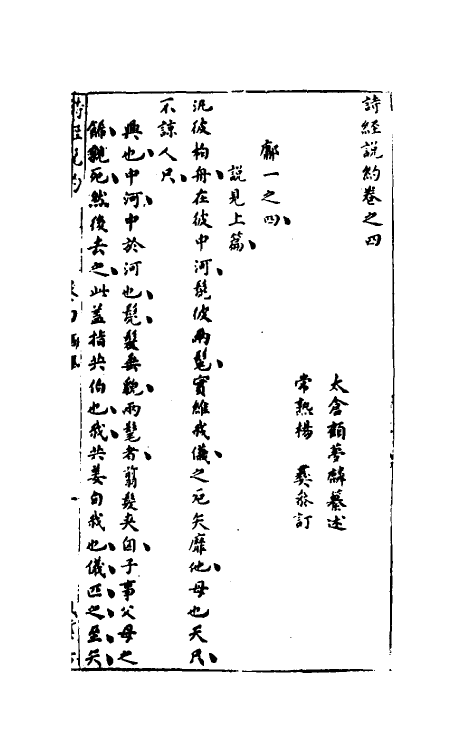 詩經說約卷之四
太倉顧夢麟纂述
常熟楊　彝叅訂
鄘一之四
說見上篇
汎彼柏舟在彼中河髧彼兩髦實維我儀之死矢靡他母也天只
不諒人只
興也中河中於河也髧髮垂貌兩髦者翦髮夾囟子事父母之
餙親死然後去之此盖指共伯也我共姜自我也儀匹之至矢